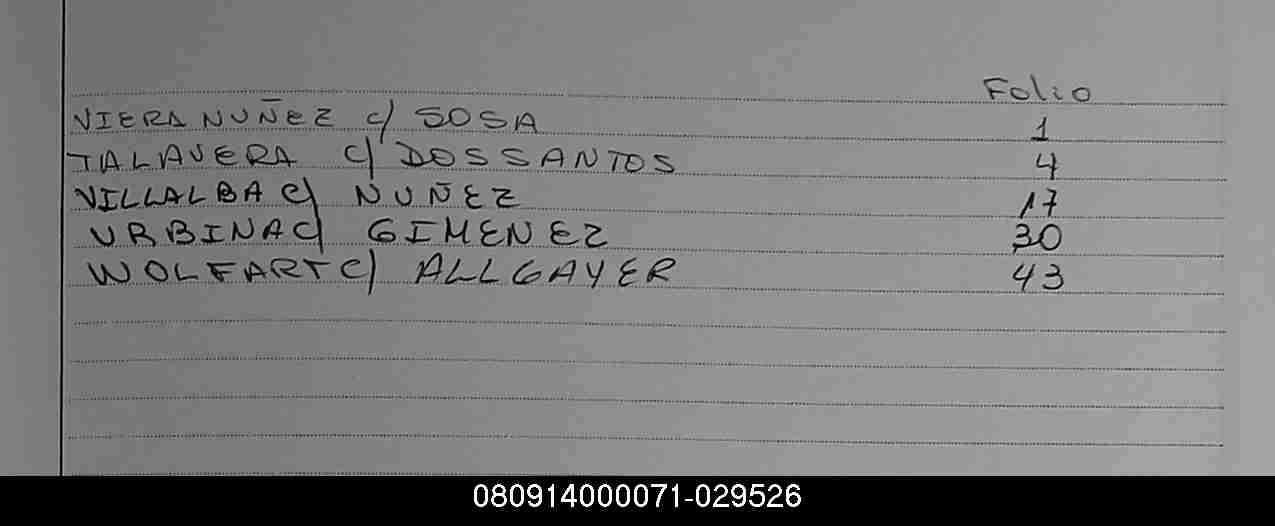 Folio
VIERA NUÑEZ c/ SOSA 1
TALAVERA c/ DOS SANTOS 4
VILLALBA c/ NUÑEZ 17
URBINA c/ GIMENEZ 30
WOLFART c/ ALLGAYER 43
080914000071-029526